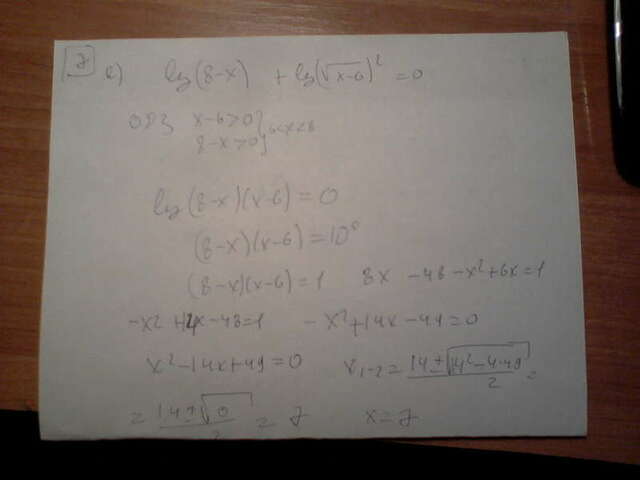 7 е) lg(8-x) + lg(√x-6)² = 0
ОДЗ x-6>0 } 6<x<8
8-x>0
lg(8-x)(x-6) = 0
(8-x)(x-6) = 10⁰
(8-x)(x-6) = 1 8x -48-x²+6x=1
-x²+14x-48=1 -x²+14x-49=0
x²-14x+49=0 x₁₋₂ = 14±√14²-4·49 / 2 =
= 14±√0 / 2 = 7 x=7